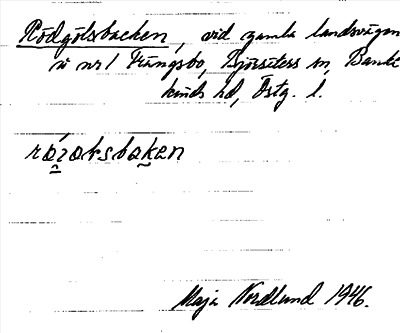 Rödgölsbacken, vid gamla landsvägen
i nr 1 Fångsbo, Björsäters sn, Bankе
kinds hd, Östg. l.
Maja Nordlund 1946.